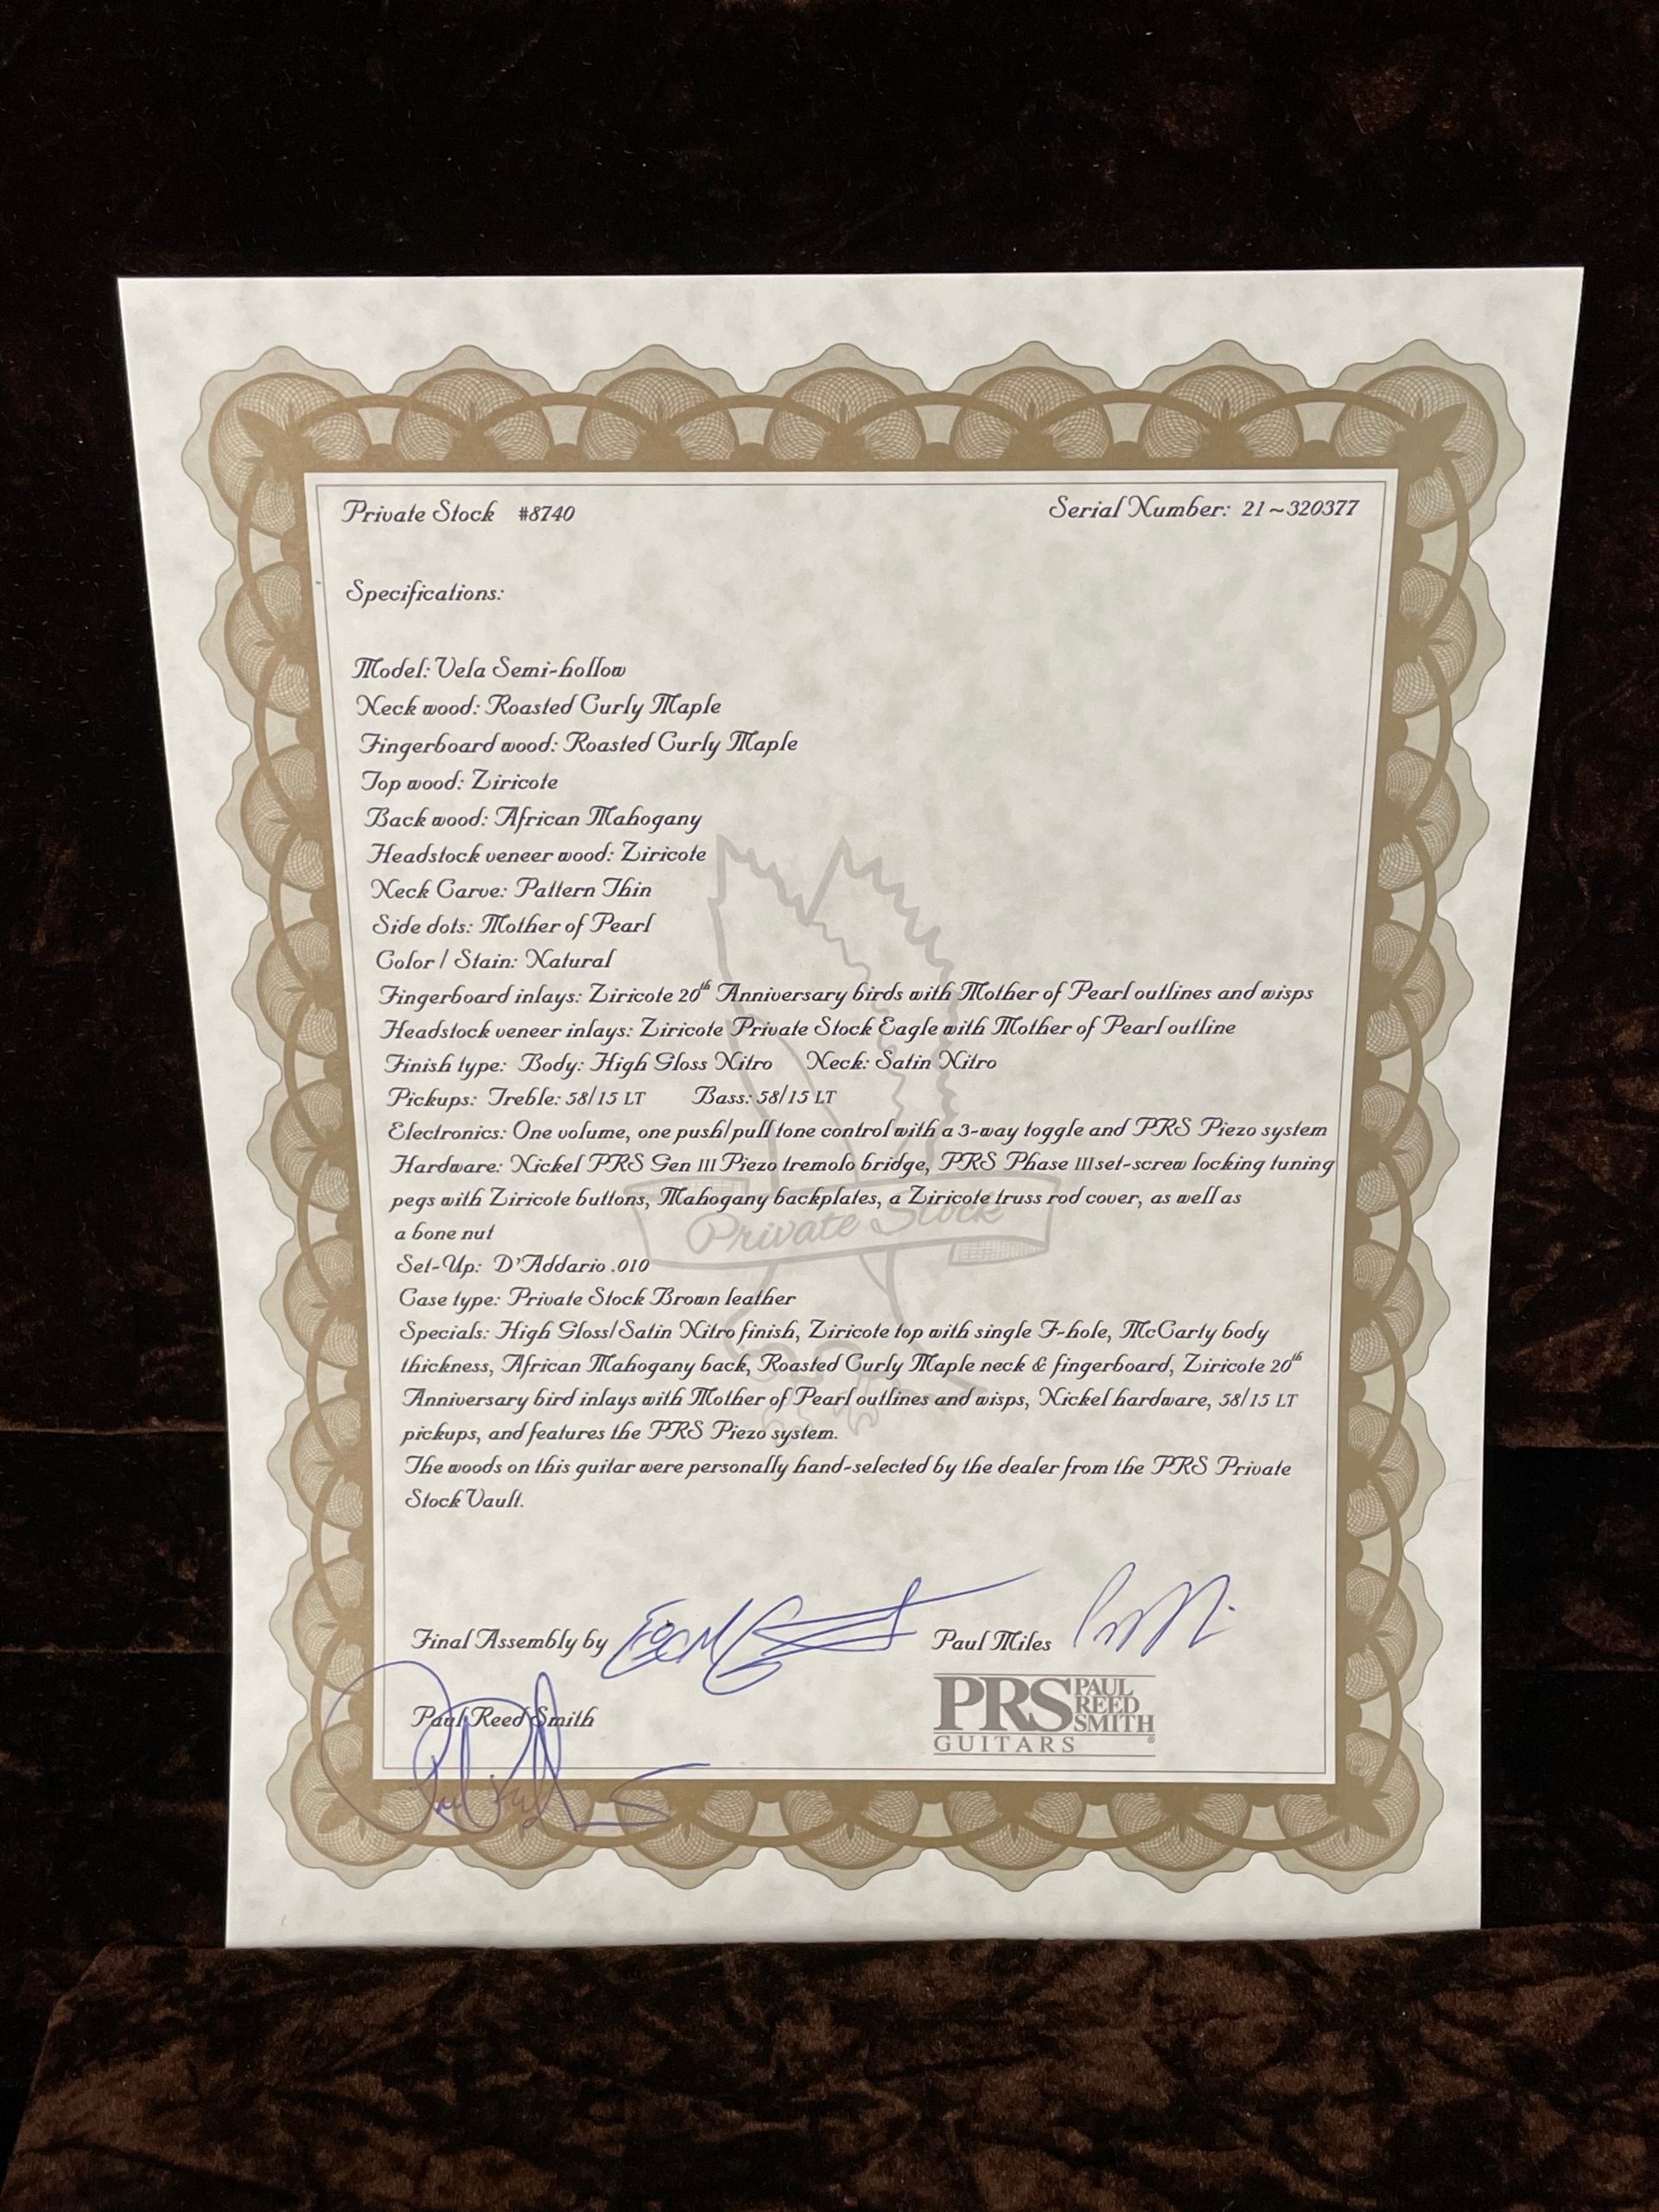 Private Stock #8740 Serial Number: 21~320377
Specifications:
Model: Vela Semi-hollow
Neck wood: Roasted Curly Maple
Fingerboard wood: Roasted Curly Maple
Top wood: Ziricote
Back wood: African Mahogany
Headstock veneer wood: Ziricote
Neck Carve: Pattern Thin
Side dots: Mother of Pearl
Color / Stain: Natural
Fingerboard inlays: Ziricote 20th Anniversary birds with Mother of Pearl outlines and wisps
Headstock veneer inlays: Ziricote Private Stock Eagle with Mother of Pearl outline
Finish type: Body: High Gloss Nitro Neck: Satin Nitro
Pickups: Treble: 58/15 LT Bass: 58/15 LT
Electronics: One volume, one push/pull tone control with a 3-way toggle and PRS Piezo system
Hardware: Nickel PRS Gen III Piezo tremolo bridge, PRS Phase III set-screw locking tuning
pegs with Ziricote buttons, Mahogany backplates, a Ziricote truss rod cover, as well as
Private Stock
a bone nut
Set-Up: D'Addario .010
Case type: Private Stock Brown leather
Specials: High Gloss/Satin Nitro finish, Ziricote top with single F-hole, McCarty body
thickness, African Mahogany back, Roasted Curly Maple neck & fingerboard, Ziricote 20th
Anniversary bird inlays with Mother of Pearl outlines and wisps, Nickel hardware, 58/15 LT
pickups, and features the PRS Piezo system.
The woods on this guitar were personally hand-selected by the dealer from the PRS Private
Stock Vault.
Final Assembly by Paul Miles
Paul Reed Smith
PRS PAUL
REED
SMITH®
GUITARS